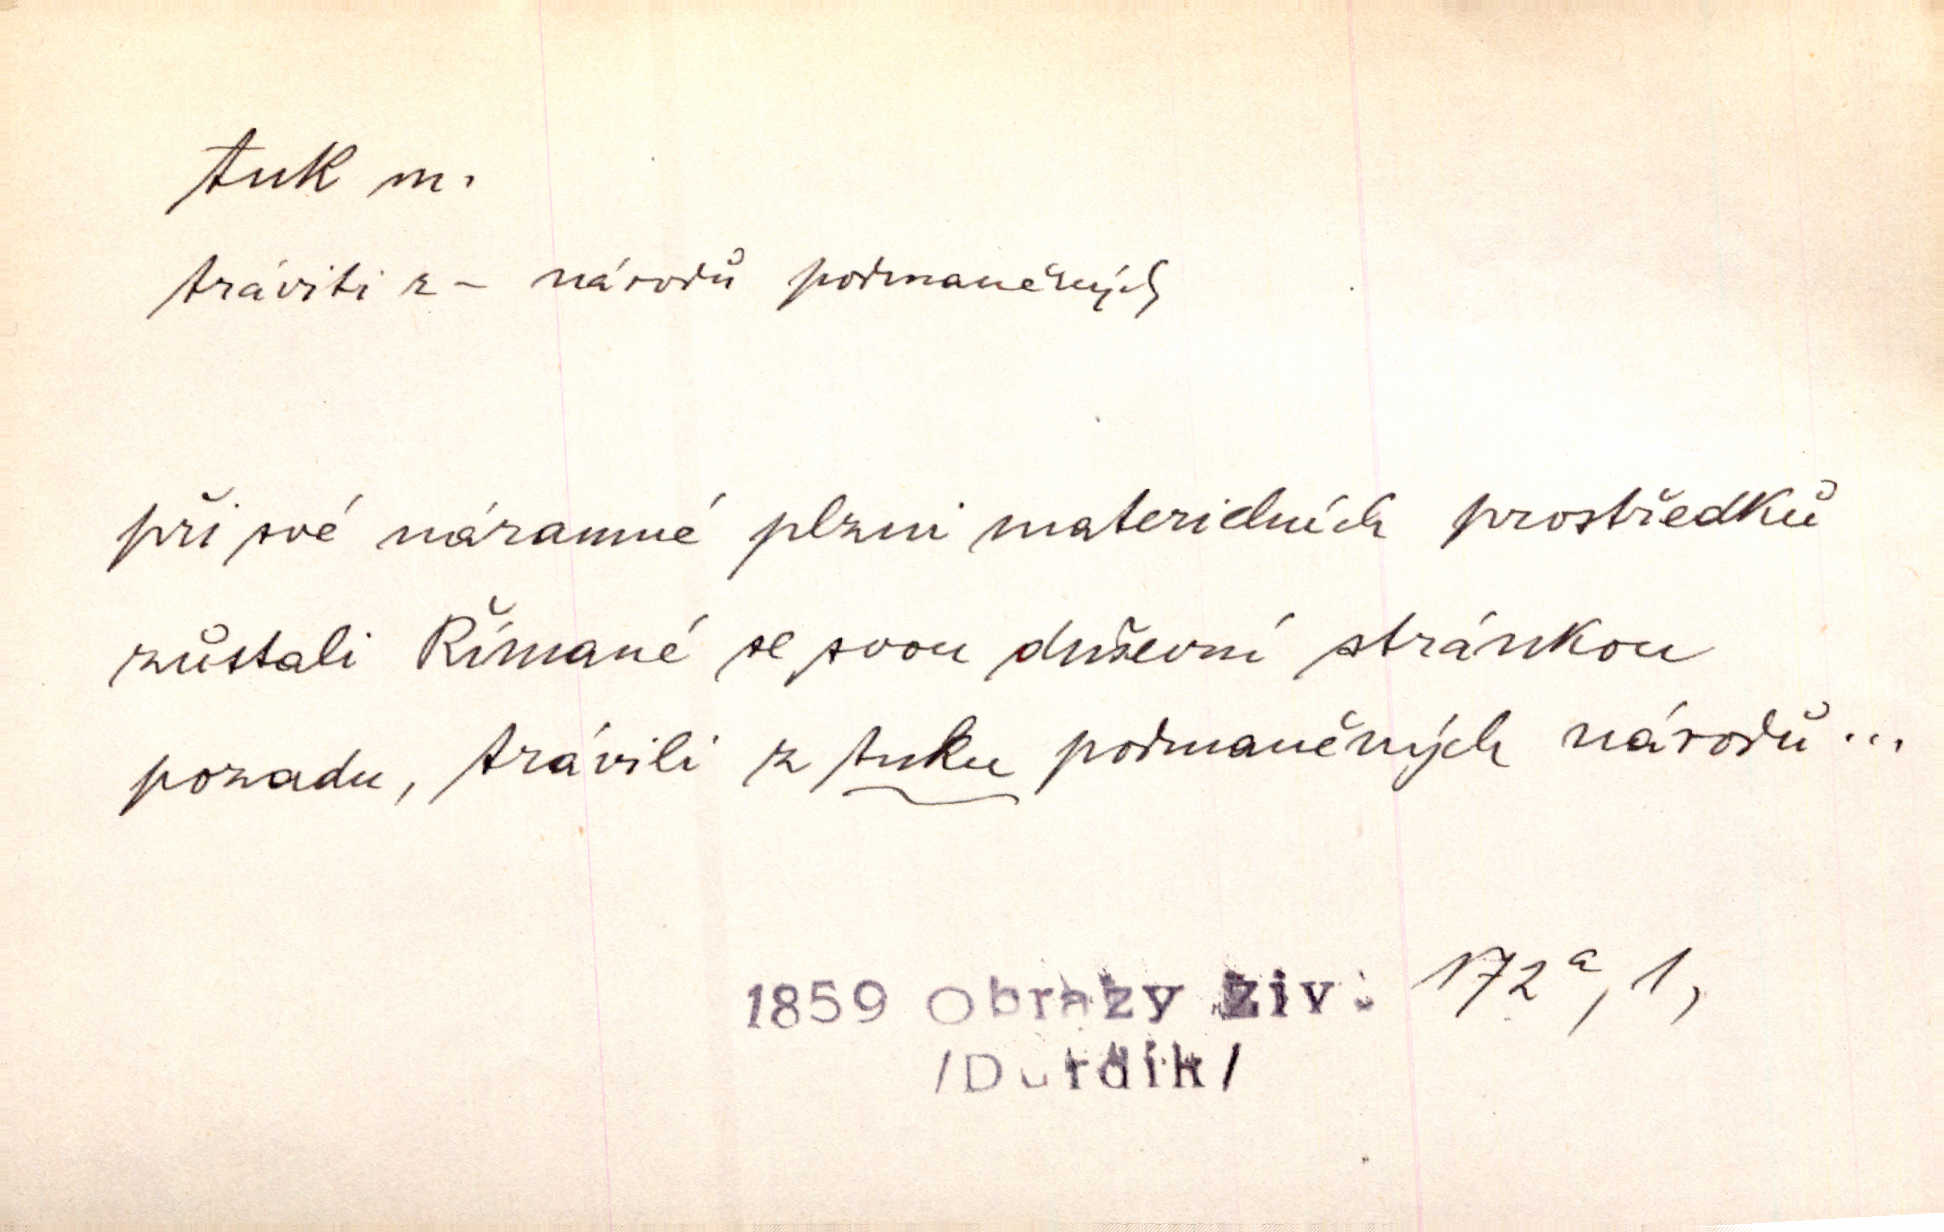 tuk m.
tráviti z – národů podmaněných
při své náramné plzni materielních prostředků
zůstali Římané se svou duševní stránkou
pozadu, trávili z tuku podmaněných národů...
1859 Obrazy živ. 172a, 1,
/Durdík/